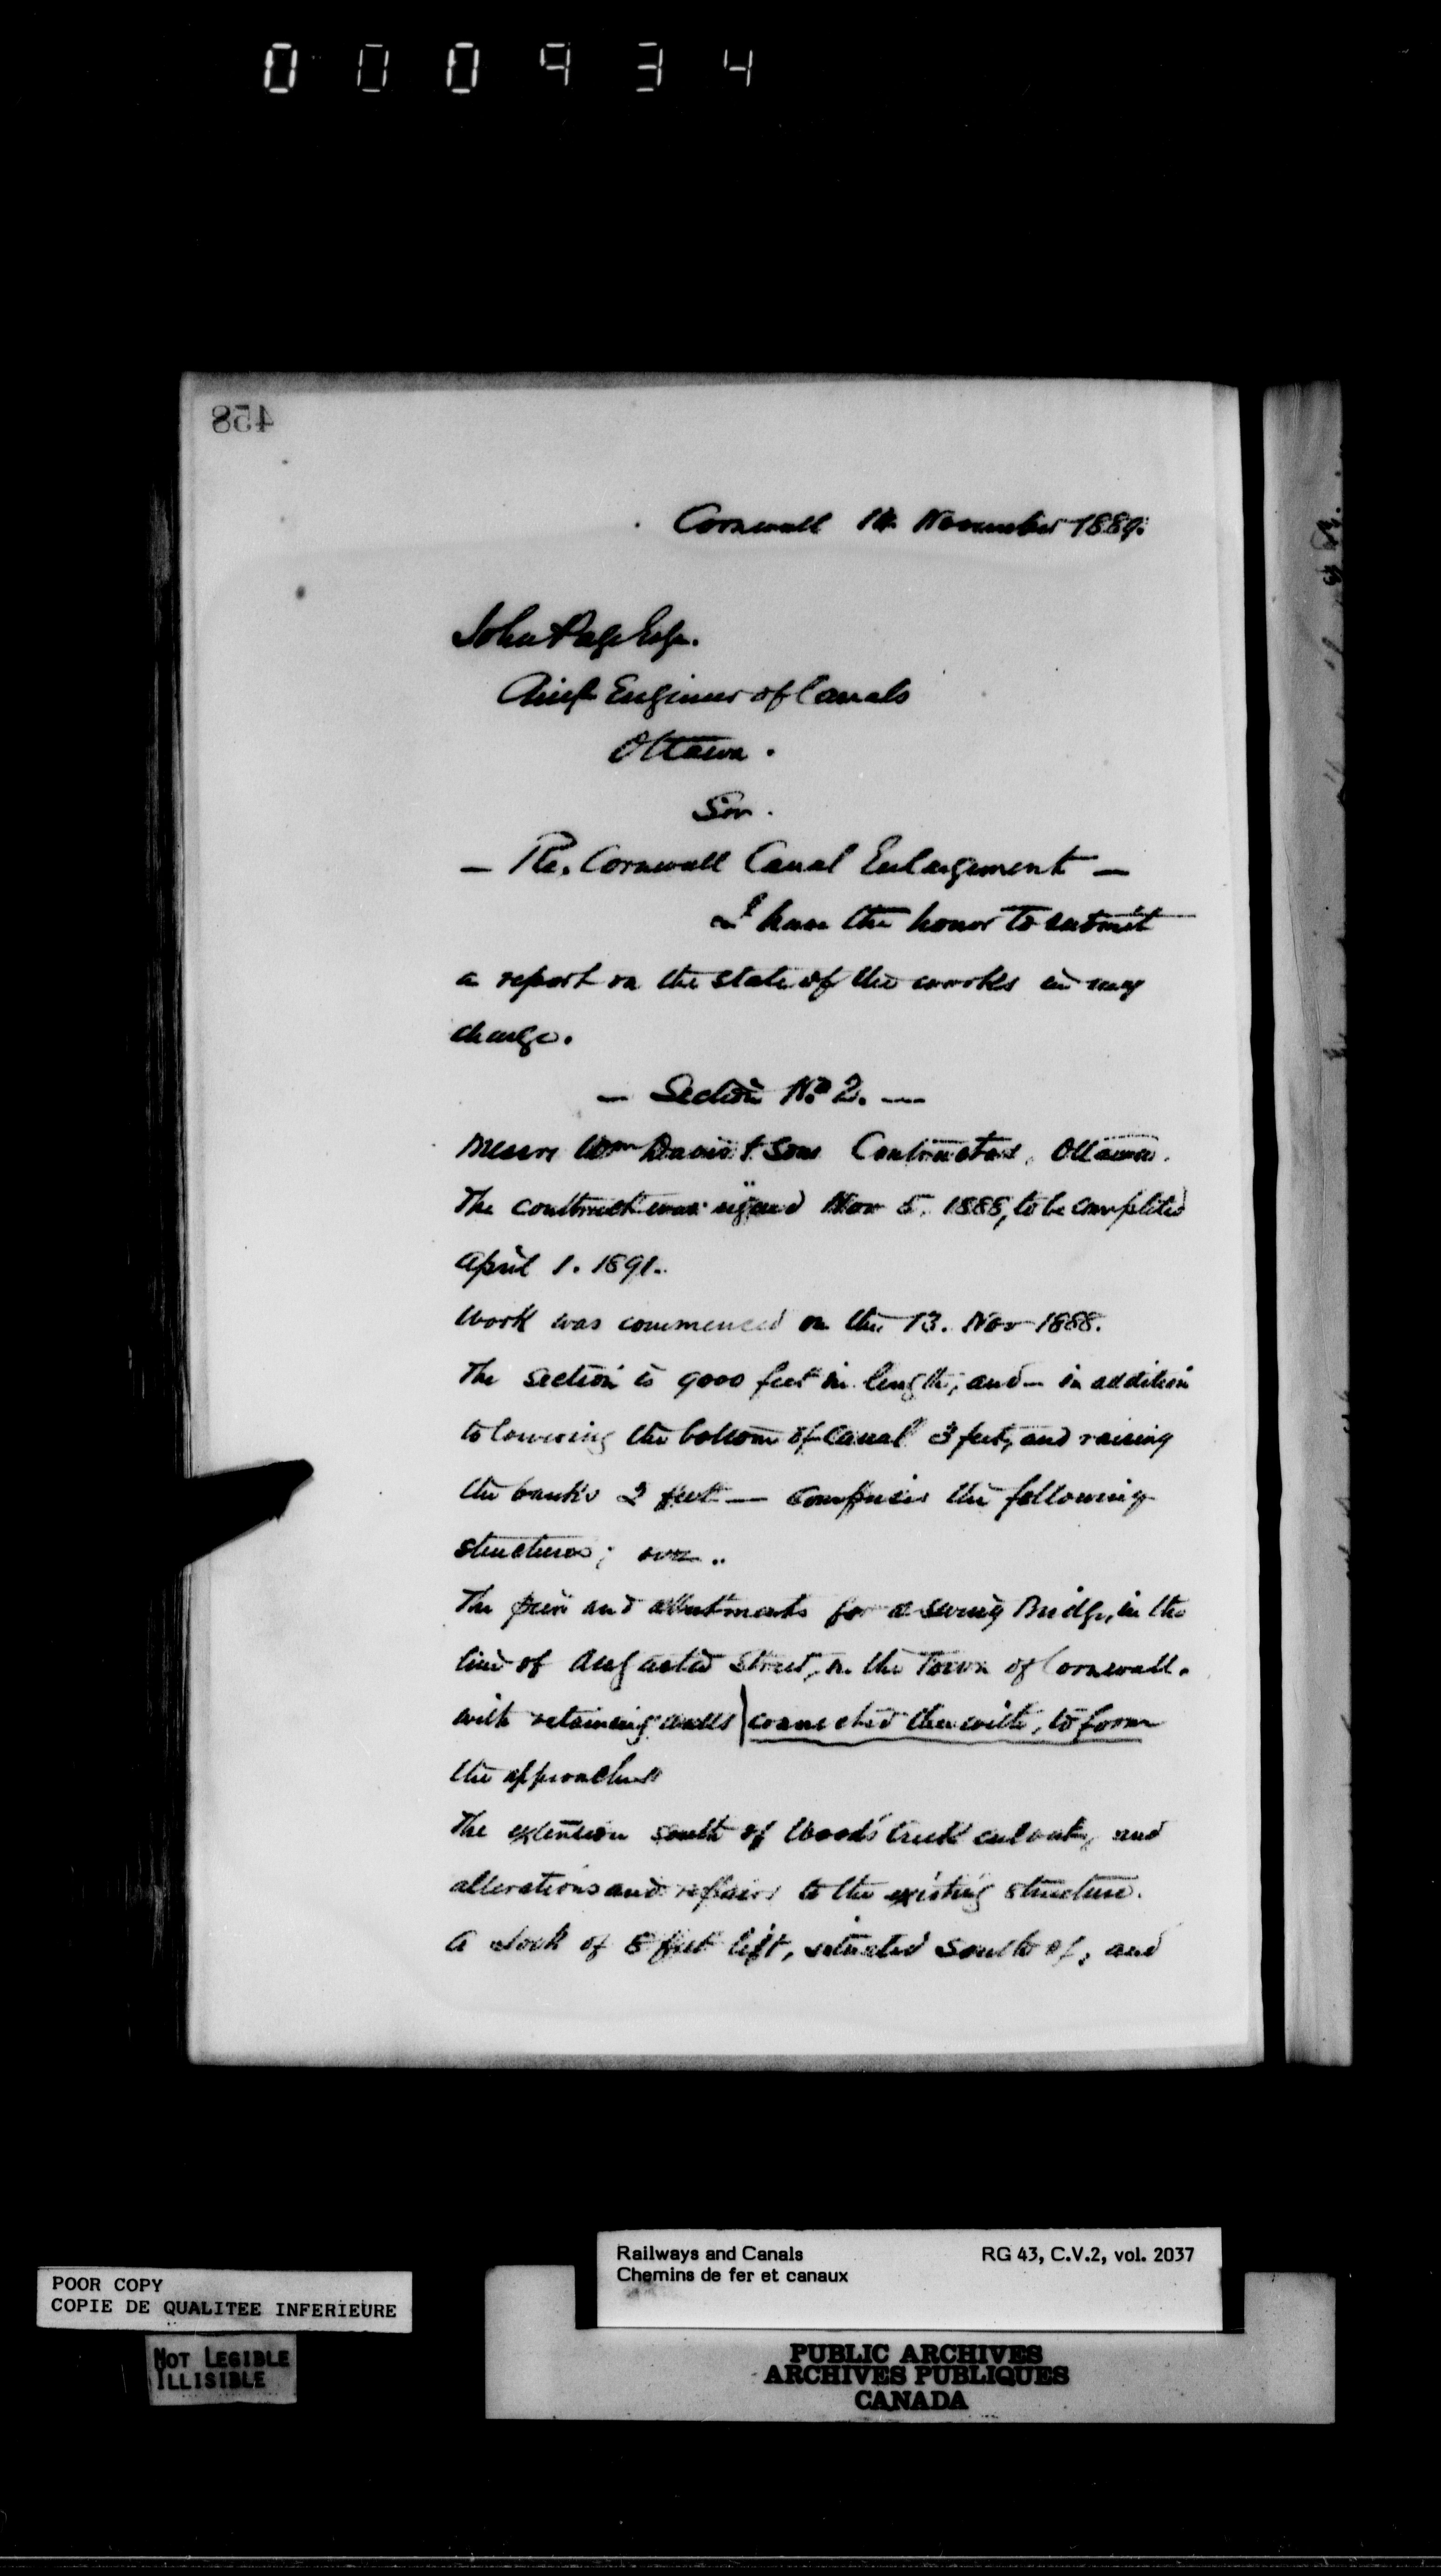 000934
458
Cornwall 14. November 1889.
John Page Esqr.
Chief Engineer of Canals
Ottawa.
Sir.
— Re. Cornwall Canal Enlargement —
I have the honor to submit
a report on the state of the works in my
charge.
— Section No. 2. —
Messrs Wm Davis & Sons Contractors, Ottawa.
The contract was signed Nov 5. 1888, to be completed
April 1. 1891.
Work was commenced on the 13. Nov 1888.
The section is 9000 feet in length, and — in addition
to lowering the bottom of Canal 3 feet, and raising
the banks 2 feet — comprises the following
structures;
The pier and abutments for a swing Bridge, in the
line of Augusta Street, in the Town of Cornwall.
with retaining walls connected therewith, to form
the approaches
The extention south of Woods Creek culvert, and
alterations and repairs to the existing structure.
A Lock of 8 feet lift, situated south of, and
Railways and Canals RG 43, C.V.2, vol. 2037
Chemins de fer et canaux
POOR COPY
COPIE DE QUALITEE INFERIEURE
NOT LEGIBLE
ILLISIBLE
PUBLIC ARCHIVES
ARCHIVES PUBLIQUES
CANADA